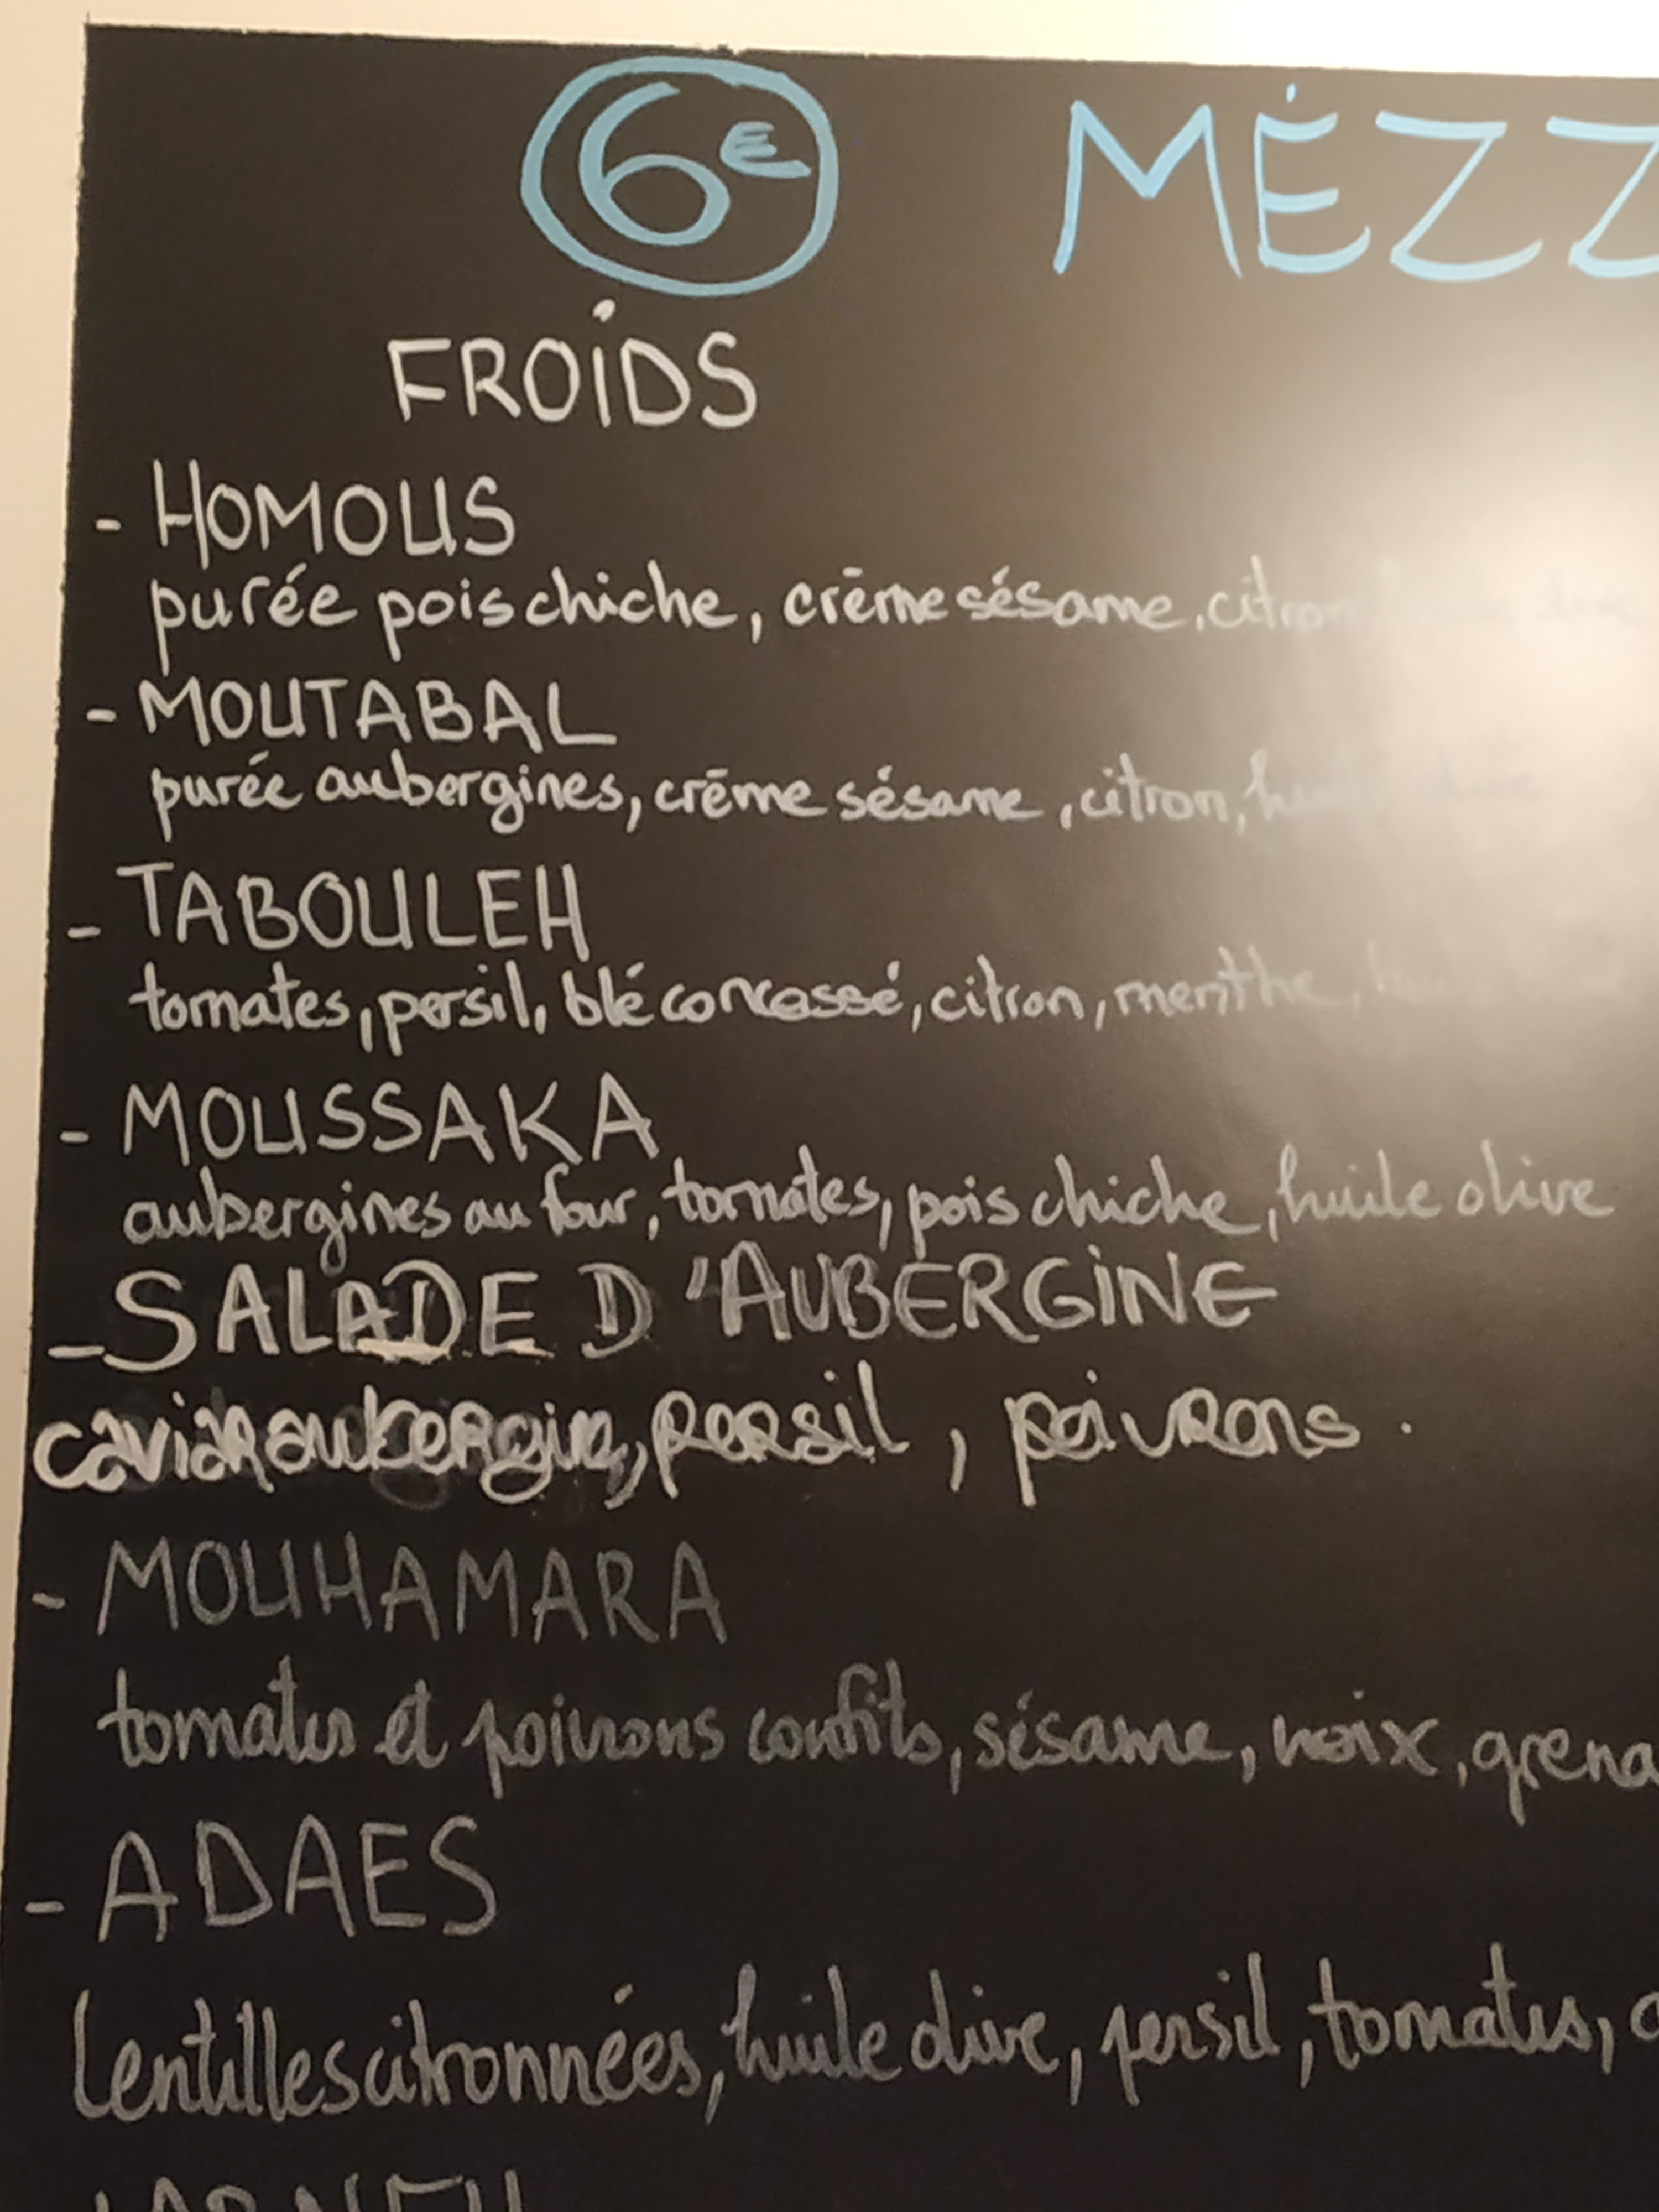 6€ MÉZZ
FROIDS
- HOMOUS
purée pois chiche, crème sésame, citron
- MOUTABAL
purée aubergines, crème sésame, citron,
- TABOULEH
tomates, persil, blé concassé, citron, menthe,
- MOUSSAKA
aubergines au four, tomates, pois chiche, huile olive
- SALADE D'AUBERGINE
caviar aubergine, persil, poivrons.
- MOUHAMARA
tomates et poivrons confits, sésame, noix, grena
- ADAES
lentilles citronnées, huile olive, persil, tomates,